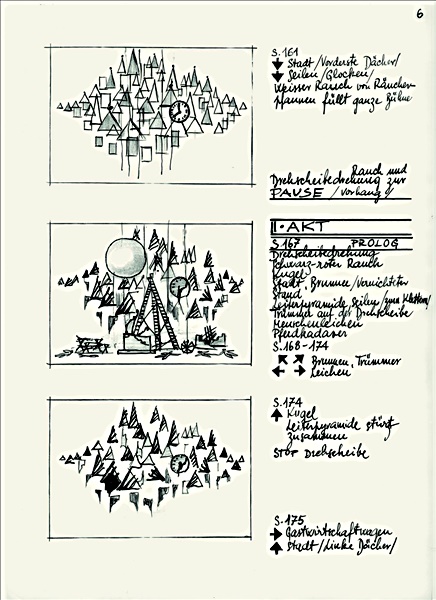 6
S. 161
Stadt /Vorderste Dächer/
Seilen /Glocken/
Weisser Rauch von Räucher-
pfannen füllt ganze Bühne
Rauch und
Drehscheibedrehung zur
PAUSE /Vorhang/
II. AKT
S 167 PROLOG
Drehscheibedrehung
Schwarz-roter Rauch
Kugel
Stadt, Brunnen /Vernichteter
Stand
Leiterpyramide, Seilen /zum Klettern/
Trümmer auf der Drehscheibe
Menschenleichen
Pferdkadaver
S. 168-174
Brunnen, Trümmer
Leichen
S. 174
Kugel
Leiterpyramide stürzt
zusammen
STOP Drehscheibe
S. 175
Gastwirtschaftwagen
Stadt /Linke Dächer/